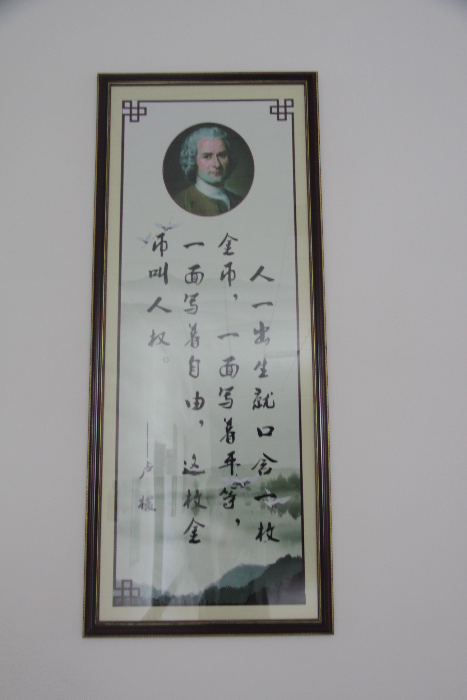 人一出生就口含一枚
金币，一面写着平等，
一面写着自由，这枚金
币叫人权。
——卢梭